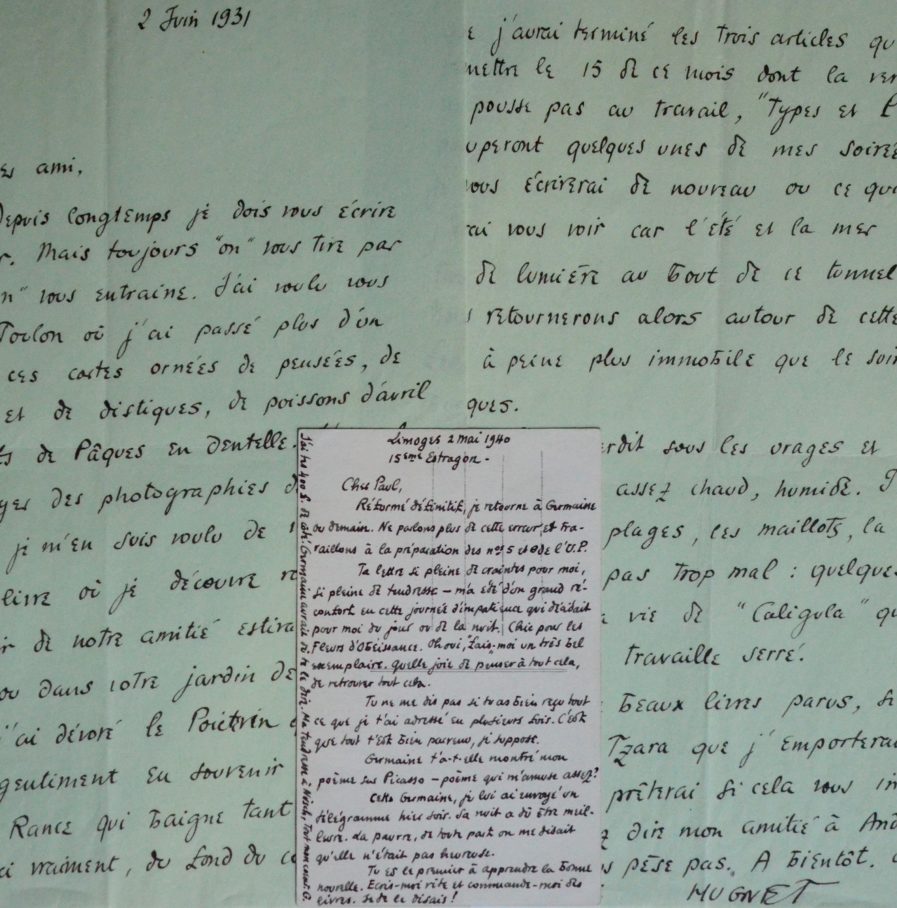 2 Juin 1931
ami,
depuis longtemps je dois vous écrire
Mais toujours "on" vous tire par
vous entraine. J'ai voulu vous
Toulon où j'ai passé plus d'un
ces cartes ornées de pensées, de
et de distiques, de poissons d'avril
de Pâques en dentelle.
des photographies
je m'en suis voulu de
livre où je découvre
de notre amitié
ou dans votre jardin de
j'ai dévoré le Poictrin
gentiment en souvenir
Rance qui baigne tant
vraiment, du fond du
j'aurai terminé les trois articles
mettre le 15 de ce mois dont la
pousse pas au travail, "Types et
quelques unes de mes
écrirerai de nouveau ou ce
vous voir car l'été et la mer
de lumière au bout de ce tunnel
retournerons alors autour de cette
à peine plus immobile que le
ques.
sous les orages et
assez chaud, humide.
plages, les maillots, la
pas trop mal : quelques
vie de "Caligula"
travaille serré.
beaux livres parus,
Tzara que j'emporterai
prêterai si cela vous
dire mon amitié à
pèse pas. A bientôt.
HUGNET
Limoges 2 mai 1940
15eme Estragon -
Cher Paul,
Réformé définitif, je retourne à Germaine
ou demain. Ne parlons plus de cette erreur et tra-
vaillons à la préparation des nos 5 et 6 de l'U.P.
Ta lettre si pleine de craintes pour moi,
si pleine de tendresse - m'a été d'un grand ré-
confort en cette journée d'impatience qui décidait
pour moi du jour ou de la nuit. Chic pour les
Fleurs d'Obéissance. Oh oui, fais-moi un très bel
exemplaire. Quelle joie de penser à tout cela,
de retrouver tout cela.
Tu ne me dis pas si tu as bien reçu tout
ce que je t'ai adressé en plusieurs fois. C'est
que tout t'est bien parvenu, je suppose.
Germaine t'a-t-elle montré mon
poème sur Picasso - poème qui m'amuse assez?
Cette Germaine, je lui ai envoyé un
télégramme hier soir. Sa nuit a dû être meil-
leure. La pauvre, de toute part on me disait
qu'elle n'était pas heureuse.
Tu es le premier à apprendre la bonne
nouvelle. Ecris-moi vite et commande-moi des
livres. Je te le disais !
Germaine aurait dû te le dire. Ma tendresse à Nusch, tout mon cœur. G.